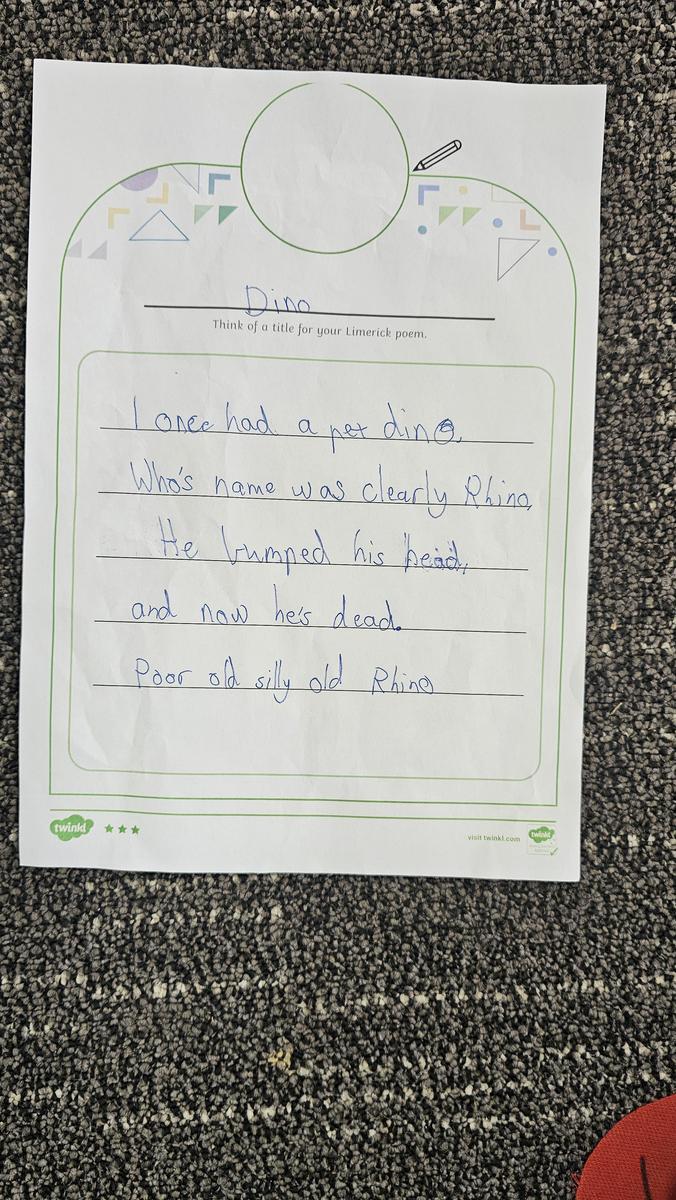 Dino
Think of a title for your Limerick poem.
I once had a pet dino.
Who's name was clearly Rhino,
He bumped his head,
and now he's dead.
Poor old silly old Rhino
twinkl
visit twinkl.com
twinkl